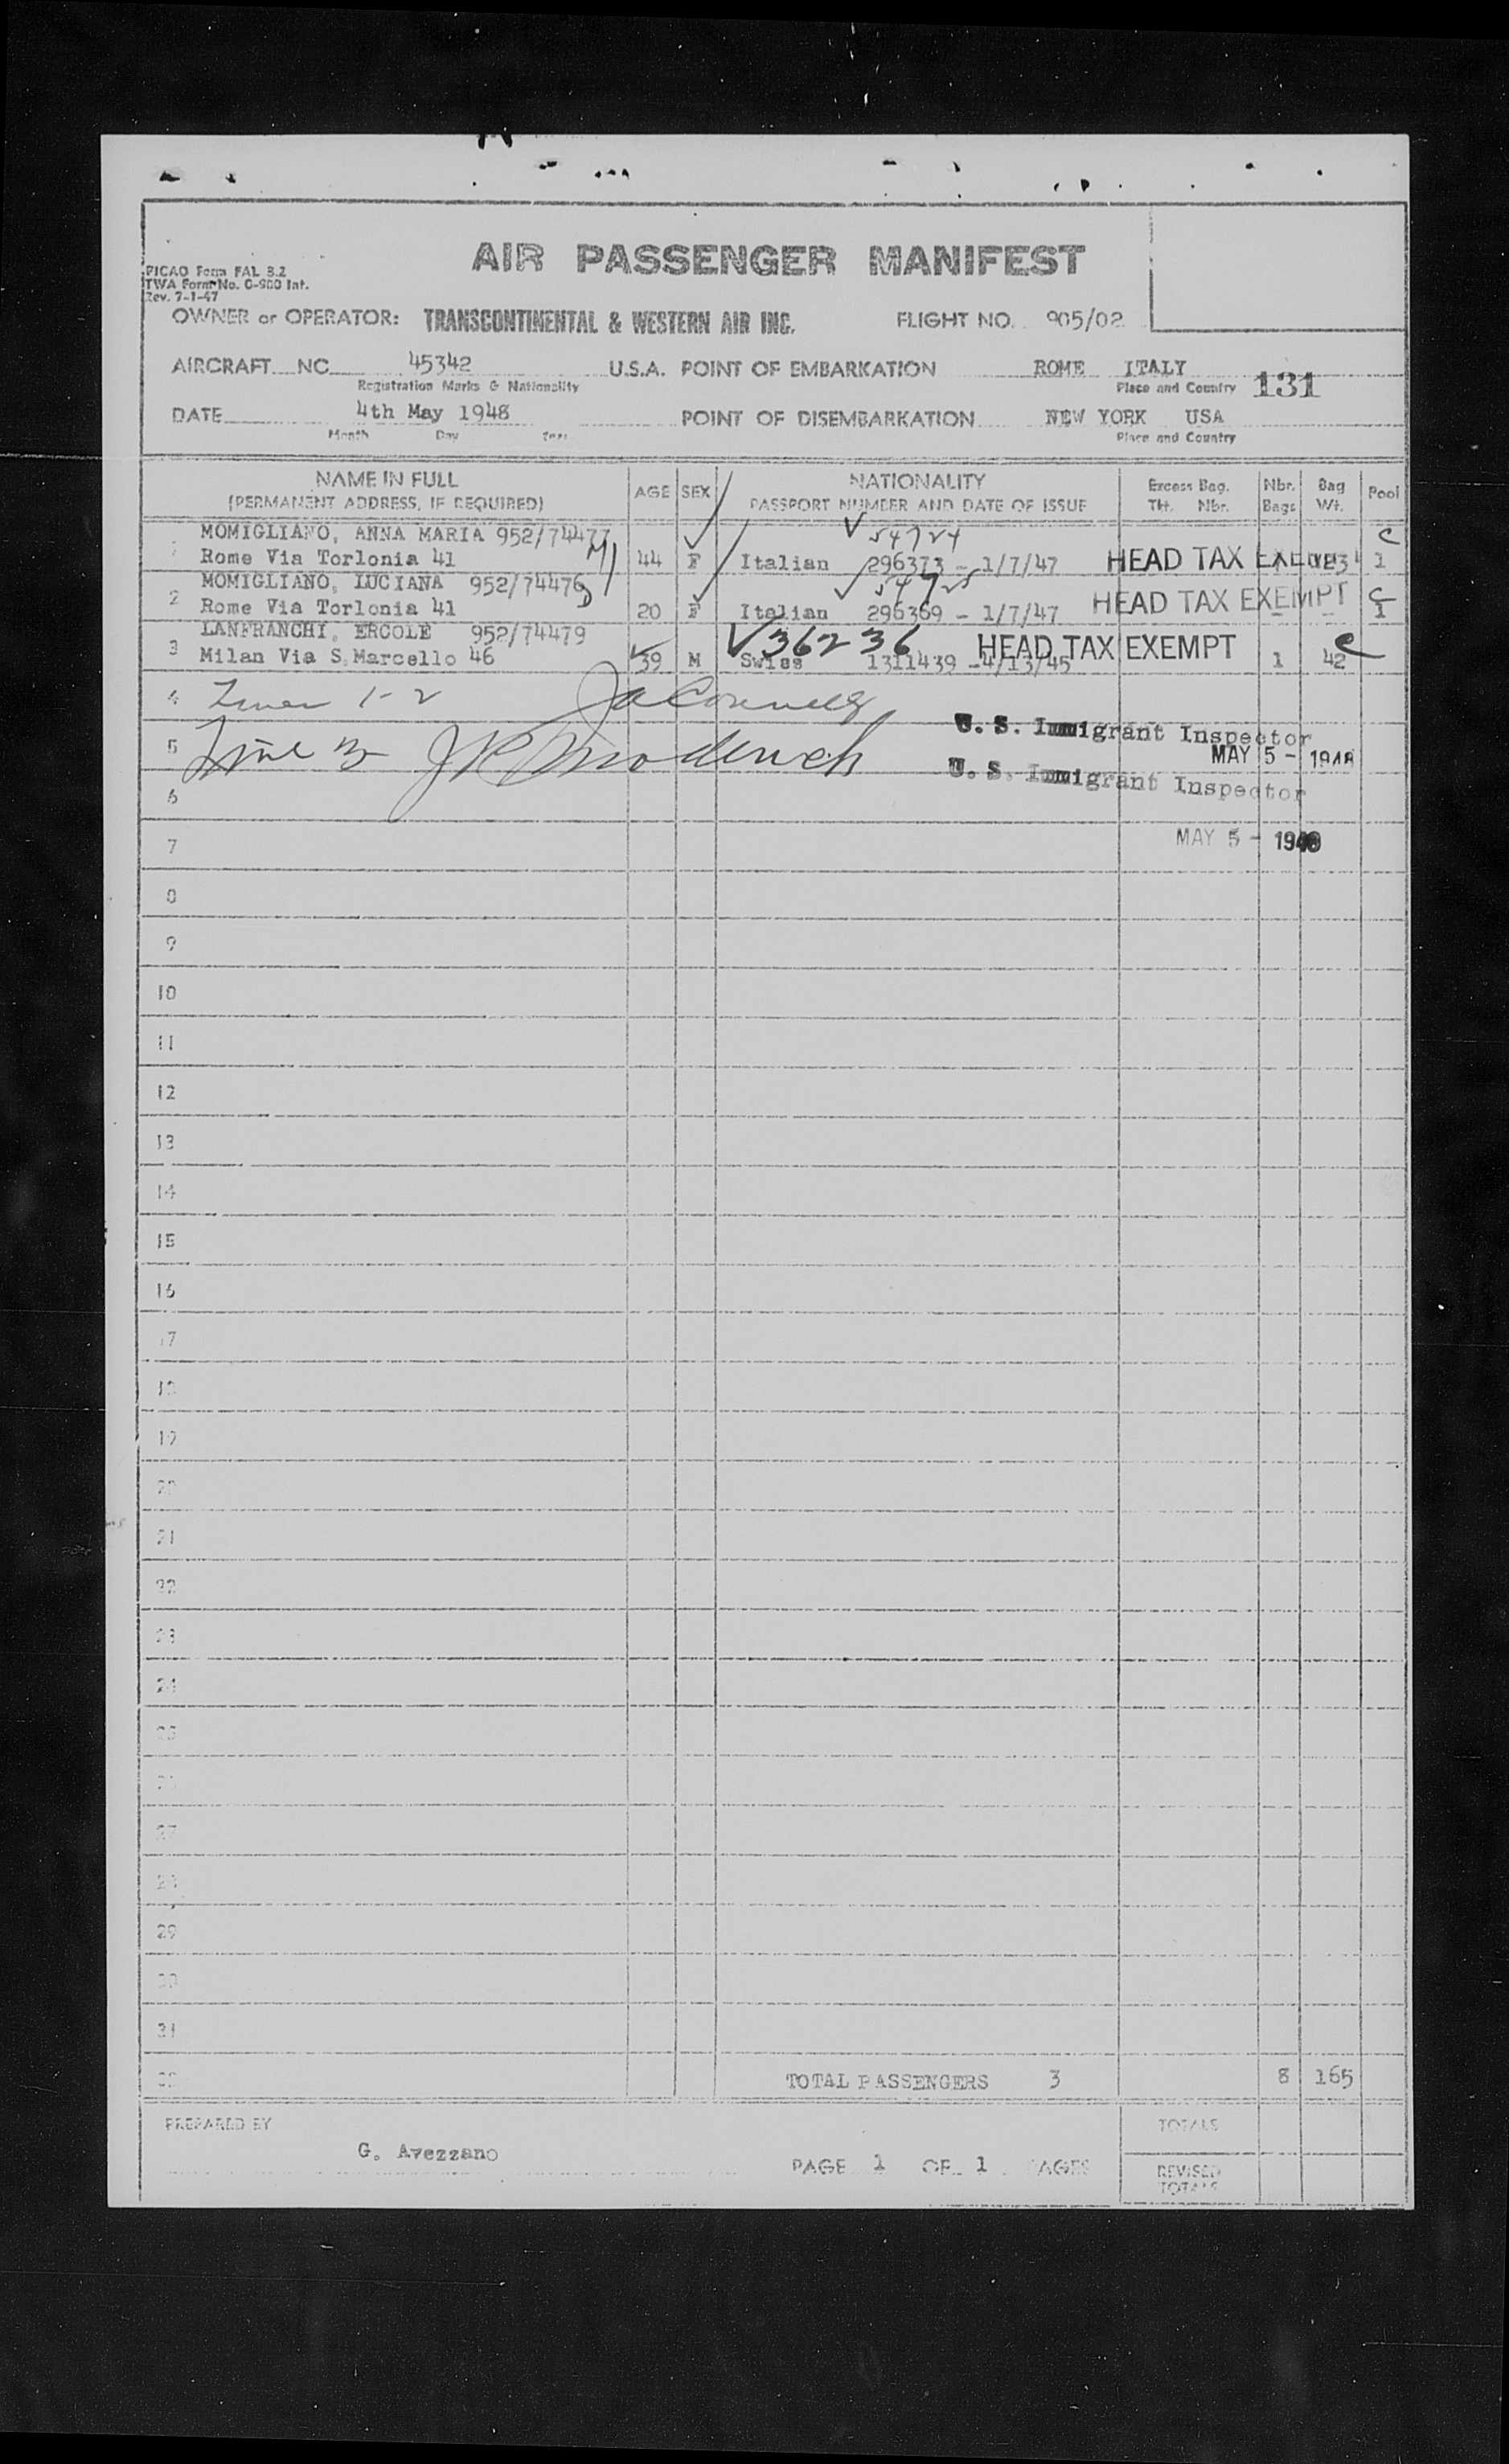 AIR PASSENGER MANIFEST
PICAO Form FAL 3.2
TWA Form No. O-900 Int.
Rev. 7-1-47
OWNER or OPERATOR: TRANSCONTINENTAL & WESTERN AIR INC. FLIGHT NO. 905/02
AIRCRAFT NC 45342 U.S.A. POINT OF EMBARKATION ROME ITALY
Registration Marks & Nationality Place and Country 131
DATE 4th May 1948 POINT OF DISEMBARKATION NEW YORK USA
Month Day Year Place and Country
NAME IN FULL AGE SEX NATIONALITY Excess Bag. Nbr. Bag Pool
(PERMANENT ADDRESS, IF REQUIRED) PASSPORT NUMBER AND DATE OF ISSUE Tkt. Nbr. Bags Wt.
MOMIGLIANO, ANNA MARIA 952/74477 54724 C
1 Rome Via Torlonia 41 44 F Italian 296373 - 1/7/47 HEAD TAX 1
MOMIGLIANO, LUCIANA 952/74476 54725 C
2 Rome Via Torlonia 41 20 F Italian 296369 - 1/7/47 HEAD TAX EXEMPT - - 1
LANFRANCHI, ERCOLE 952/74479 36236 HEAD TAX EXEMPT C
3 Milan Via S.Marcello 46 39 M Swiss 1311439 - 4/13/45 1 42
4 Lines 1-2
U. S. Immigrant Inspector
5 Line 3 MAY 5 - 1948
U. S. Immigrant Inspector
6
7 MAY 5 - 1948
8
9
10
11
12
13
14
15
16
17
18
19
20
21
22
23
24
25
26
27
28
29
30
31
32 TOTAL PASSENGERS 3 8 165
PREPARED BY TOTALS
G. Avezzano
PAGE 1 OF 1 PAGES REVISED
TOTALS